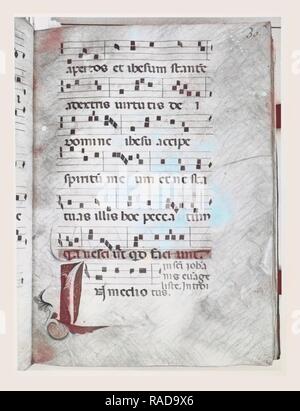 apertos et ihesum stante
adextris virtutis de i
Domine ihesu accipe
spiritū me um et ne sta
tuas illis hoc pecca tum
quinesci ūt qd faci unt.
In sc̄i ioha
nis euāge
liste. Introi
In medio tus.
alamy
RAD9X6